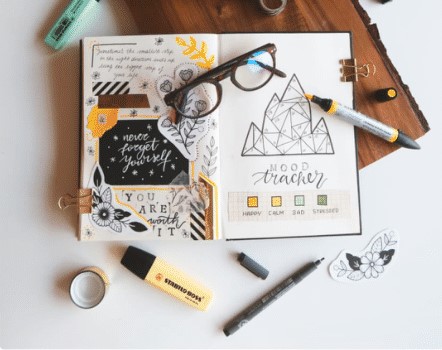 Sometimes the smallest step
in the right direction ends up
being the biggest step of
your life
never
forget
yourself
YOU
ARE
worth
IT
MOOD
tracker
HAPPY CALM SAD STRESSED
STABILO BOSS